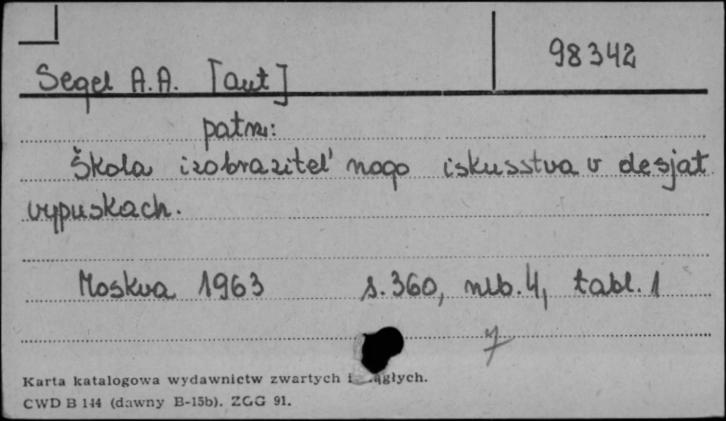 98342
Segel A.A. [aut]
patrz:
Škola izobrazitel' nogo iskusstva v desjat
vypuskach.
Moskva 1963 s. 360, nlb. 4, tabl. 1
7
Karta katalogowa wydawnictw zwartych i
CWD B 144 (dawny B-15b). ZGG 91.